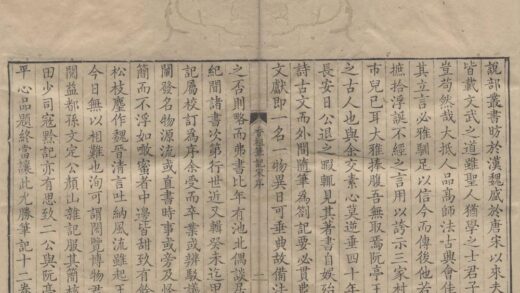 說部叢書昉於漢魏盛於唐宋以來夫
皆載文武之道雖聖人猶學之士君子
豈苟然哉大抵人品高師法古興會佳
其立言必雅馴足以信今而傳後他若
摭拾浮誕不經之言用以誇示三家村
市兒已耳大雅捧腹吾無取焉阮亭王
之古人也與余交素心莫逆垂四十年
長安日公退之暇輒見其著書自娛殆
詩古文而外間隨筆為劄記要必貫
文獻即一名一物異日可垂典故備法
香祖筆記宋序
一
之否則略而弗書比年有池北偶談居
紀聞諸書次第行世近又輯癸未迄甲
記屬校訂為序余受而卒業或辨駁議
闡發名物源流或直書時事或旁及怪
簡而不浮如噉蜜者中邊皆甜致有餘
松枝麈作魏晉清言吐納風流雖起王
今日無以相難也洵可謂閎覽博物君
閱益都孫文定公顏山雜記服其簡
田少司寇黔記亦有思致二公與阮亭
平心品題終當讓此勝筆記十二卷